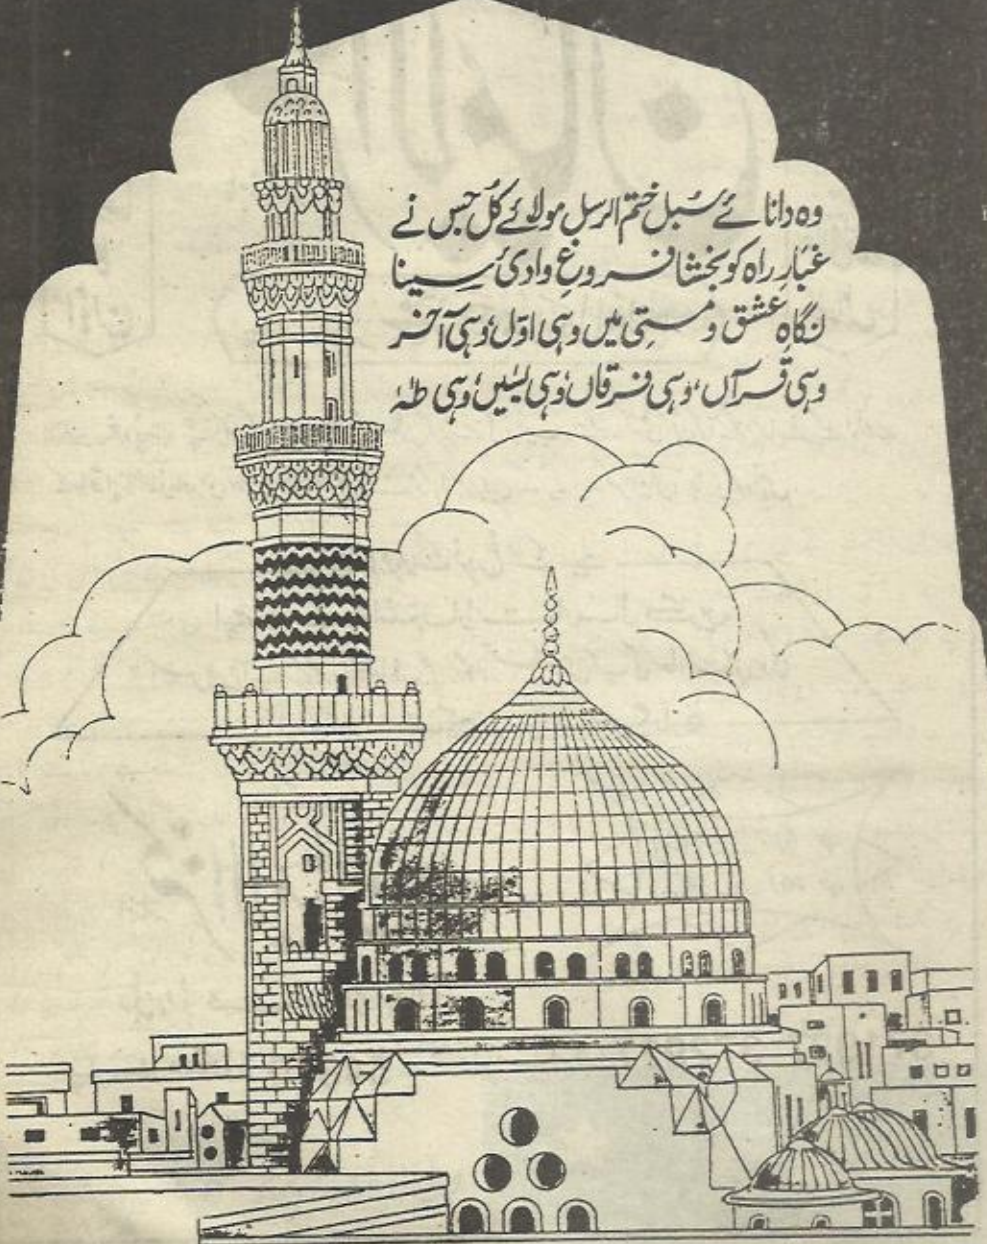 وہ دانائے سُبل ختم الرسل مولائے کُل جس نے
غبارِ راہ کو بخشا فروغِ وادیٔ سینا
نگاہِ عشق و مستی میں وہی اوّل، وہی آخر
وہی قرآں، وہی فرقاں، وہی یٰسیں، وہی طٰہٰ